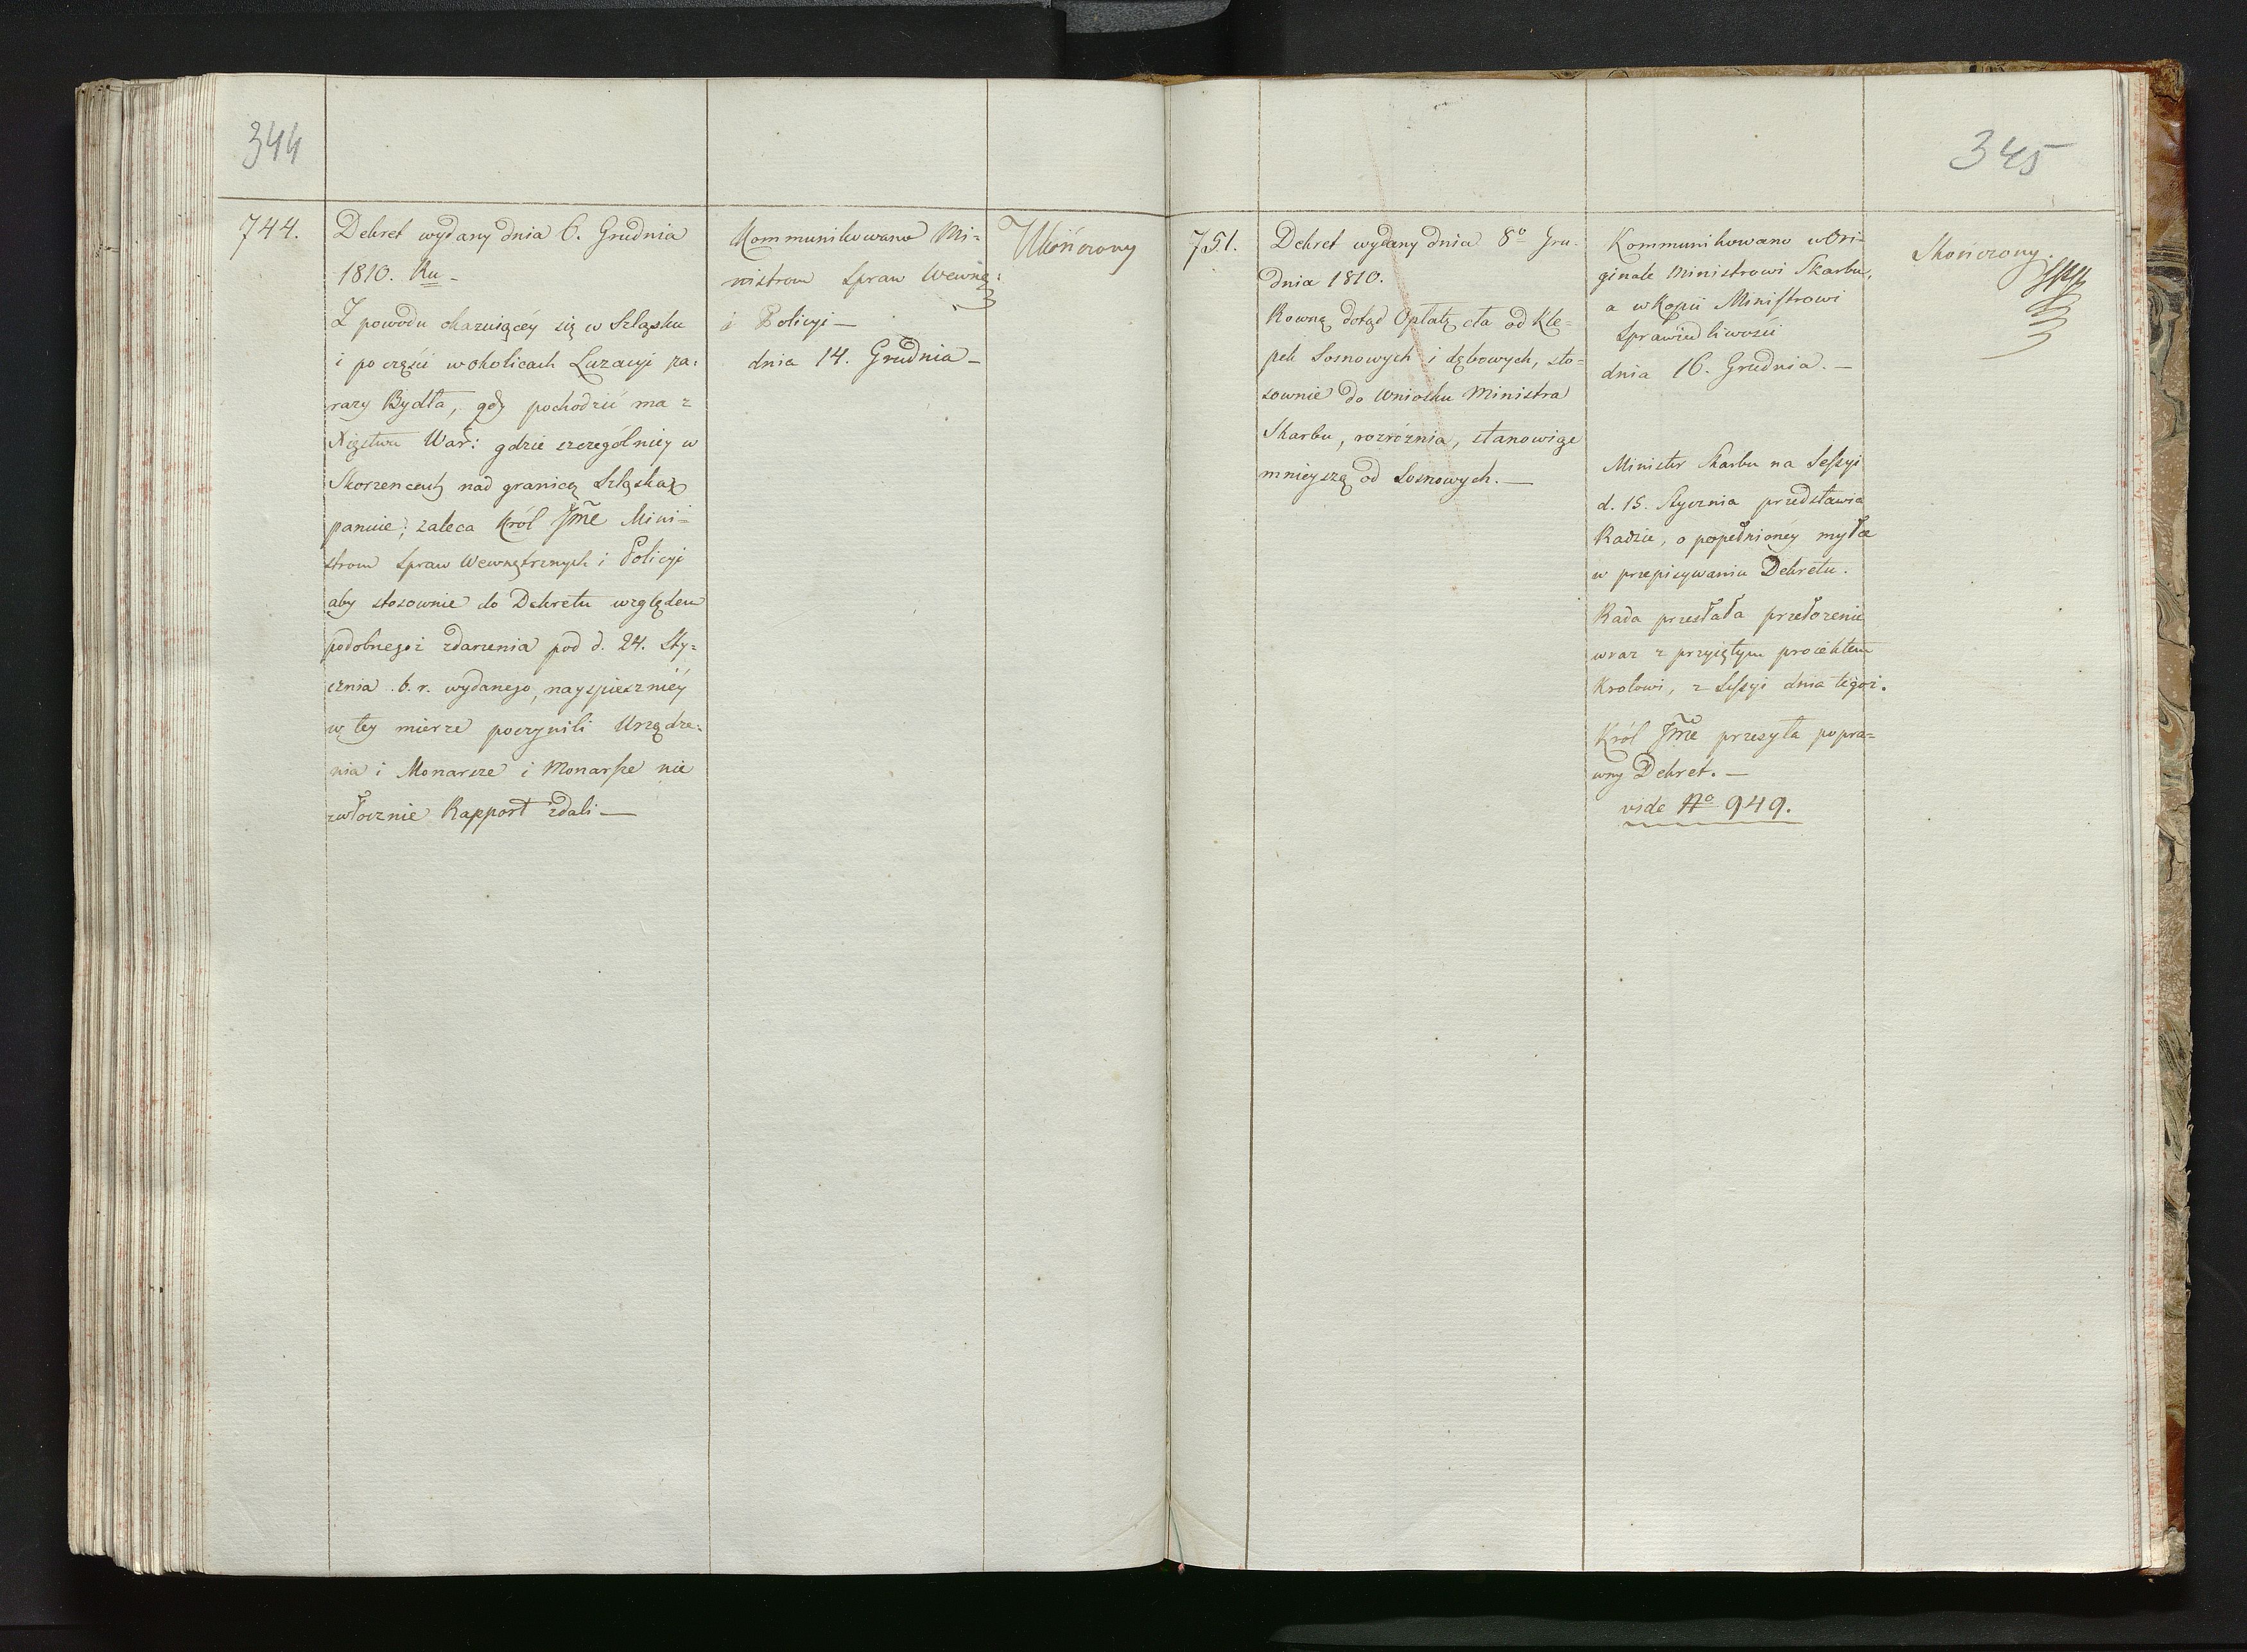 344
744.
Dekret wydany dnia 6. Grudnia
1810. Ru -
Z powodu okazuiącéy się w Szląsku
i po części w okolicach Luzacyi za:
razy Bydła, gdy pochodzić ma z
Xięstwa War: gdzie szczególniey w
Skorzencach nad granicą Szląską
panuie; zaleca Król Jmć Mini-
strom Spraw Wewnętrznych i Policyi
aby stosownie do Dekretu względem
podobnegoż zdarzenia pod d. 24. Sty:
cznia b. r. wydanego, nayspieszniéy
w tey mierze poczynili Urządze:
nia i Monarsze i Monarsze nie
zwłocznie Rapport zdali —
Kommunikowano Mi-
nistrom Spraw Wewnę:
i Policyi —
dnia 14. Grudnia —
Ukończony
345
751.
Dekret wydany dnia 8º Gru-
dnia 1810.
Rowną dotąd Opłatę cła od Kle-
pek Sosnowych i dębowych, sto-
sownie do Wniosku Ministra
Skarbu, rozróżnia, stanowiąc
mnieyszą od Sosnowych. —
Kommunikowano w Ori-
ginale Ministrowi Skarbu,
a w Kopii Ministrowi
Sprawiedliwości
dnia 16. Grudnia. —
Minister Skarbu na Sessyi
d. 15. Stycznia przedstawia
Radzie, o popełnioney myłce
w przepisywaniu Dekretu.
Rada przesłała przełożenie
wraz z przyiętym proiektem
Krolowi, z Sessyi dnia tegoż.
Król Jmć przesyła popra-
wny Dekret. —
vide Nº 949.
Skończony.